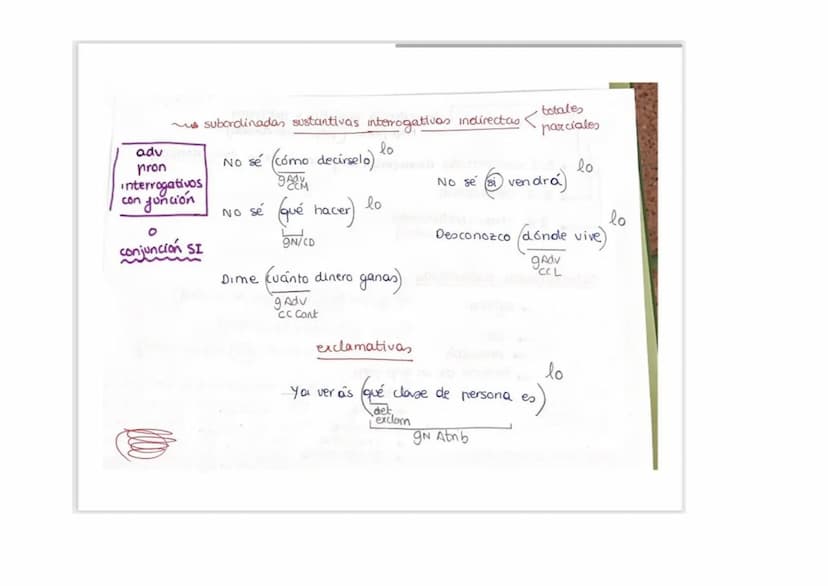 subordinadas sustantivas interrogativas indirectas
totales
parciales
adv
pron
interrogativos
con función
o
conjunción SI
No sé (cómo decírselo) lo
gAdv
CCM
No sé (si vendrá) lo
No sé (qué hacer) lo
gN/CD
Desconozco (dónde vive) lo
gAdv
CCL
Dime (cuánto dinero ganas)
gAdv
CC Cant
exclamativas
Ya verás (qué clase de persona es) lo
det
exclam
gN Atrib